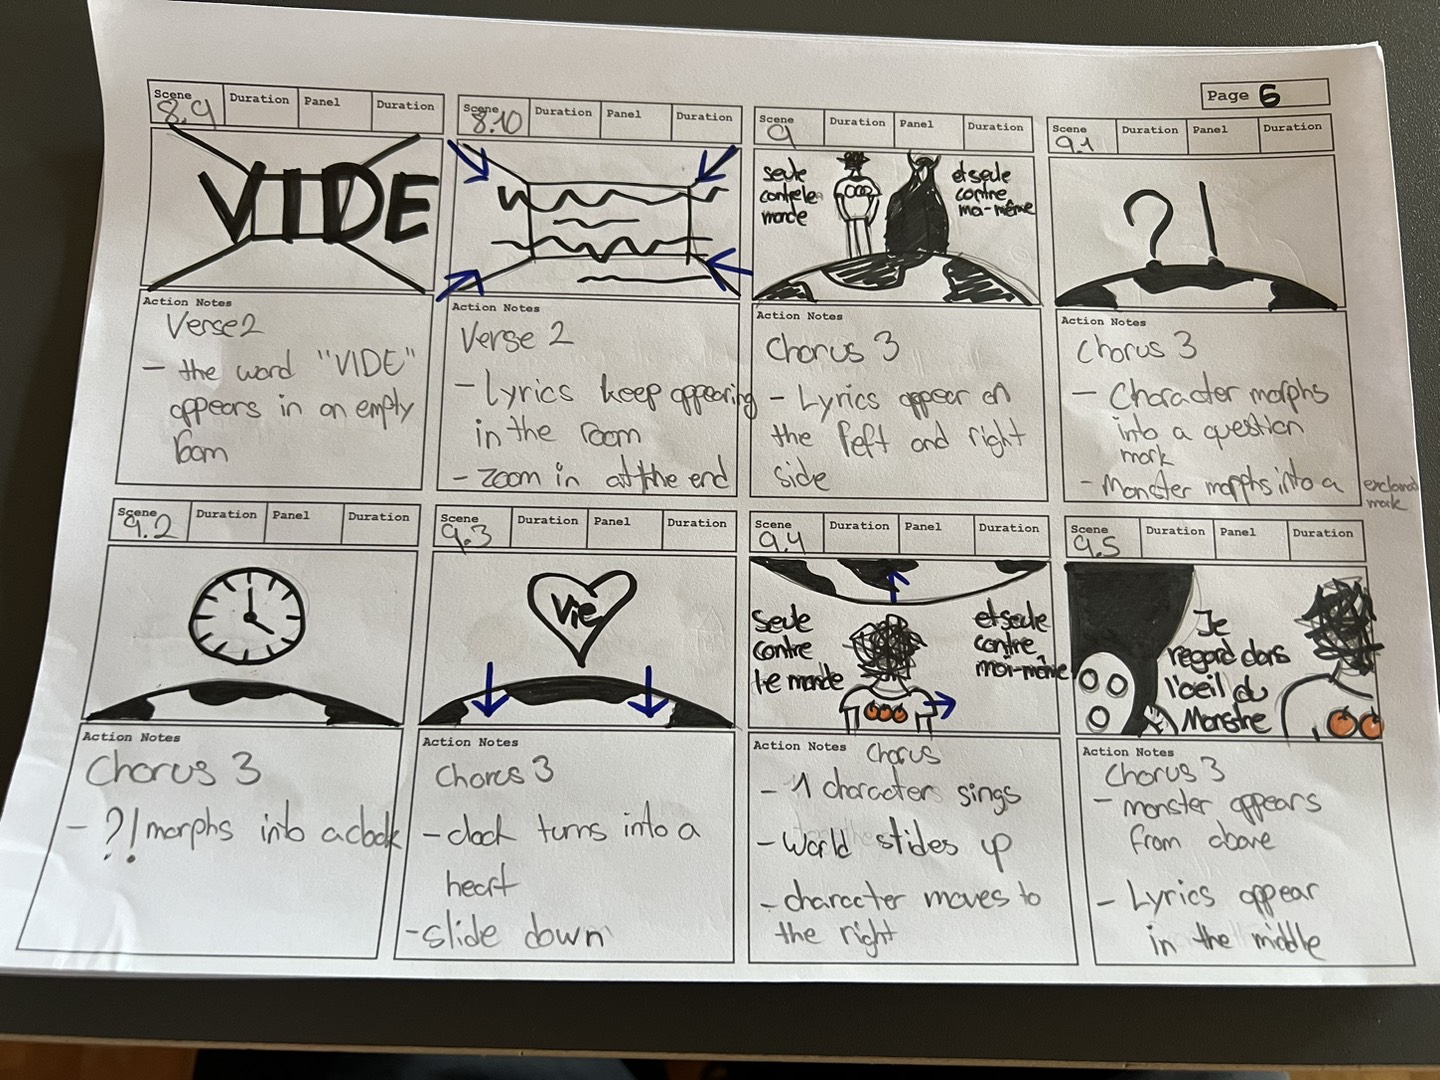 Page 6
Scene 8.9 Duration Panel Duration
VIDE
Action Notes
Verse 2
- the word "VIDE"
appears in an empty
room
Scene 8.10 Duration Panel Duration
Action Notes
Verse 2
- Lyrics keep appearing
in the room
- zoom in at the end
Scene 9 Duration Panel Duration
seule
contre le
monde
et seule
contre
moi-même
Action Notes
Chorus 3
- Lyrics appear on
the left and right
side
Scene 9.1 Duration Panel Duration
?!
Action Notes
Chorus 3
- Character morphs
into a question
mark
- Monster morphs into a
exclamation
mark
Scene 9.2 Duration Panel Duration
Action Notes
Chorus 3
- ?! morphs into a clock
Scene 9.3 Duration Panel Duration
Vie
Action Notes
Chorus 3
- clock turns into a
heart
- slide down
Scene 9.4 Duration Panel Duration
Seule
contre
le monde
et seule
contre
moi-même
Action Notes
Chorus
- 1 characters sings
- World slides up
- character moves to
the right
Scene 9.5 Duration Panel Duration
Je
regard dans
l'oeil du
Monstre
Action Notes
Chorus 3
- monster appears
from above
- Lyrics appear
in the middle